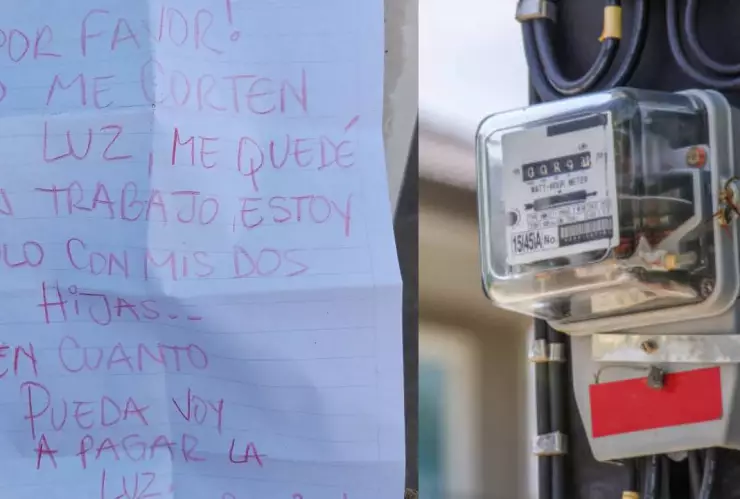 POR FAVOR!
ME CORTEN
LUZ, ME QUEDÉ
TRABAJO, ESTOY
CON MIS DOS
HIJAS...
EN CUANTO
PUEDA VOY
A PAGAR LA
LUZ.
WATT-HOUR METER
15(45)A No.